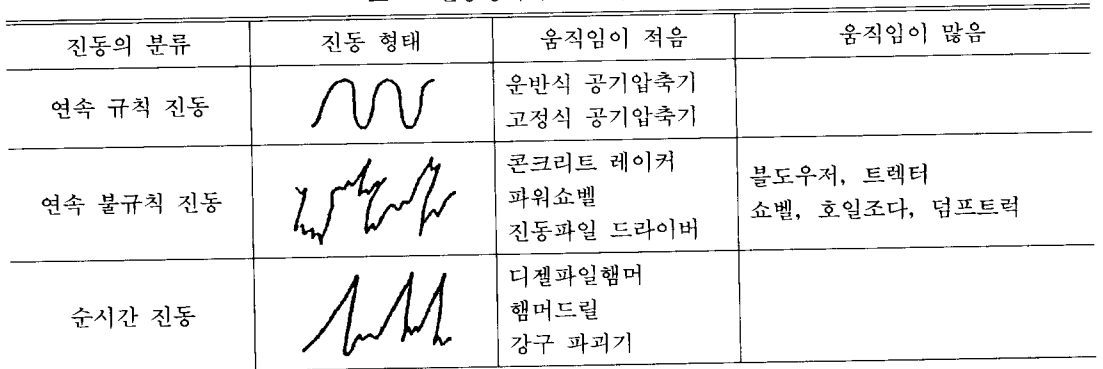 진동의 분류 진동 형태 움직임이 적음 움직임이 많음
연속 규칙 진동
운반식 공기압축기
고정식 공기압축기
연속 불규칙 진동
콘크리트 레이커
파워쇼벨
진동파일 드라이버
블도우저, 트렉터
쇼벨, 호일조다, 덤프트럭
순시간 진동
디젤파일햄머
햄머드릴
강구 파괴기